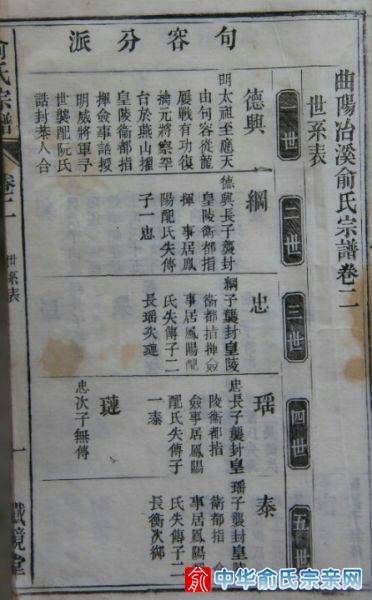 曲陽治溪俞氏宗譜卷二
世系表
一世
二世
三世
四世
五世
句容分派
德興
明太祖至應天
由句容從龍
屢戰有功復
擒元將察罕
台於燕山擢
皇陵衛都指
揮僉事誥授
明威將軍子
世襲配阮氏
誥封恭人合
綱
德興長子襲封
皇陵衛都指
揮 事居鳳
陽配氏失傳
子一忠
忠
綱子襲封皇陵
衛都指揮僉
事居鳳陽配
氏失傳子二
長瑶次璉
瑶
忠長子襲封皇
陵衛都指
僉事居鳳陽
配氏失傳子
一泰
璉
忠次子無傳
泰
瑶子襲封皇陵
衛都指 僉
事居鳳陽配
氏失傳子二
長衡次御
俞氏宗譜
卷二
世系表
一
戲鏡堂
中华俞氏宗亲网